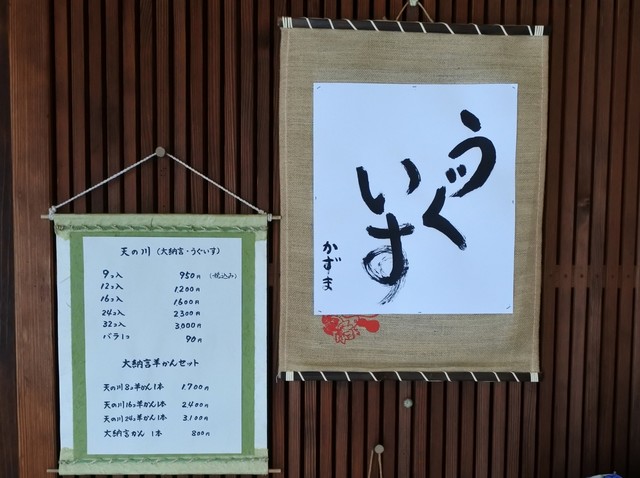 うぐ
いす
かずま
天の川 (大納言・うぐいす)
9コ入 950円 (税込み)
12コ入 1200円
16コ入 1600円
24コ入 2300円
32コ入 3,000円
バラ1コ 90円
大納言羊かんセット
天の川8コ羊かん1本 1,700円
天の川16コ羊かん1本 2,400円
天の川24コ羊かん1本 3,100円
大納言かん 1本 800円